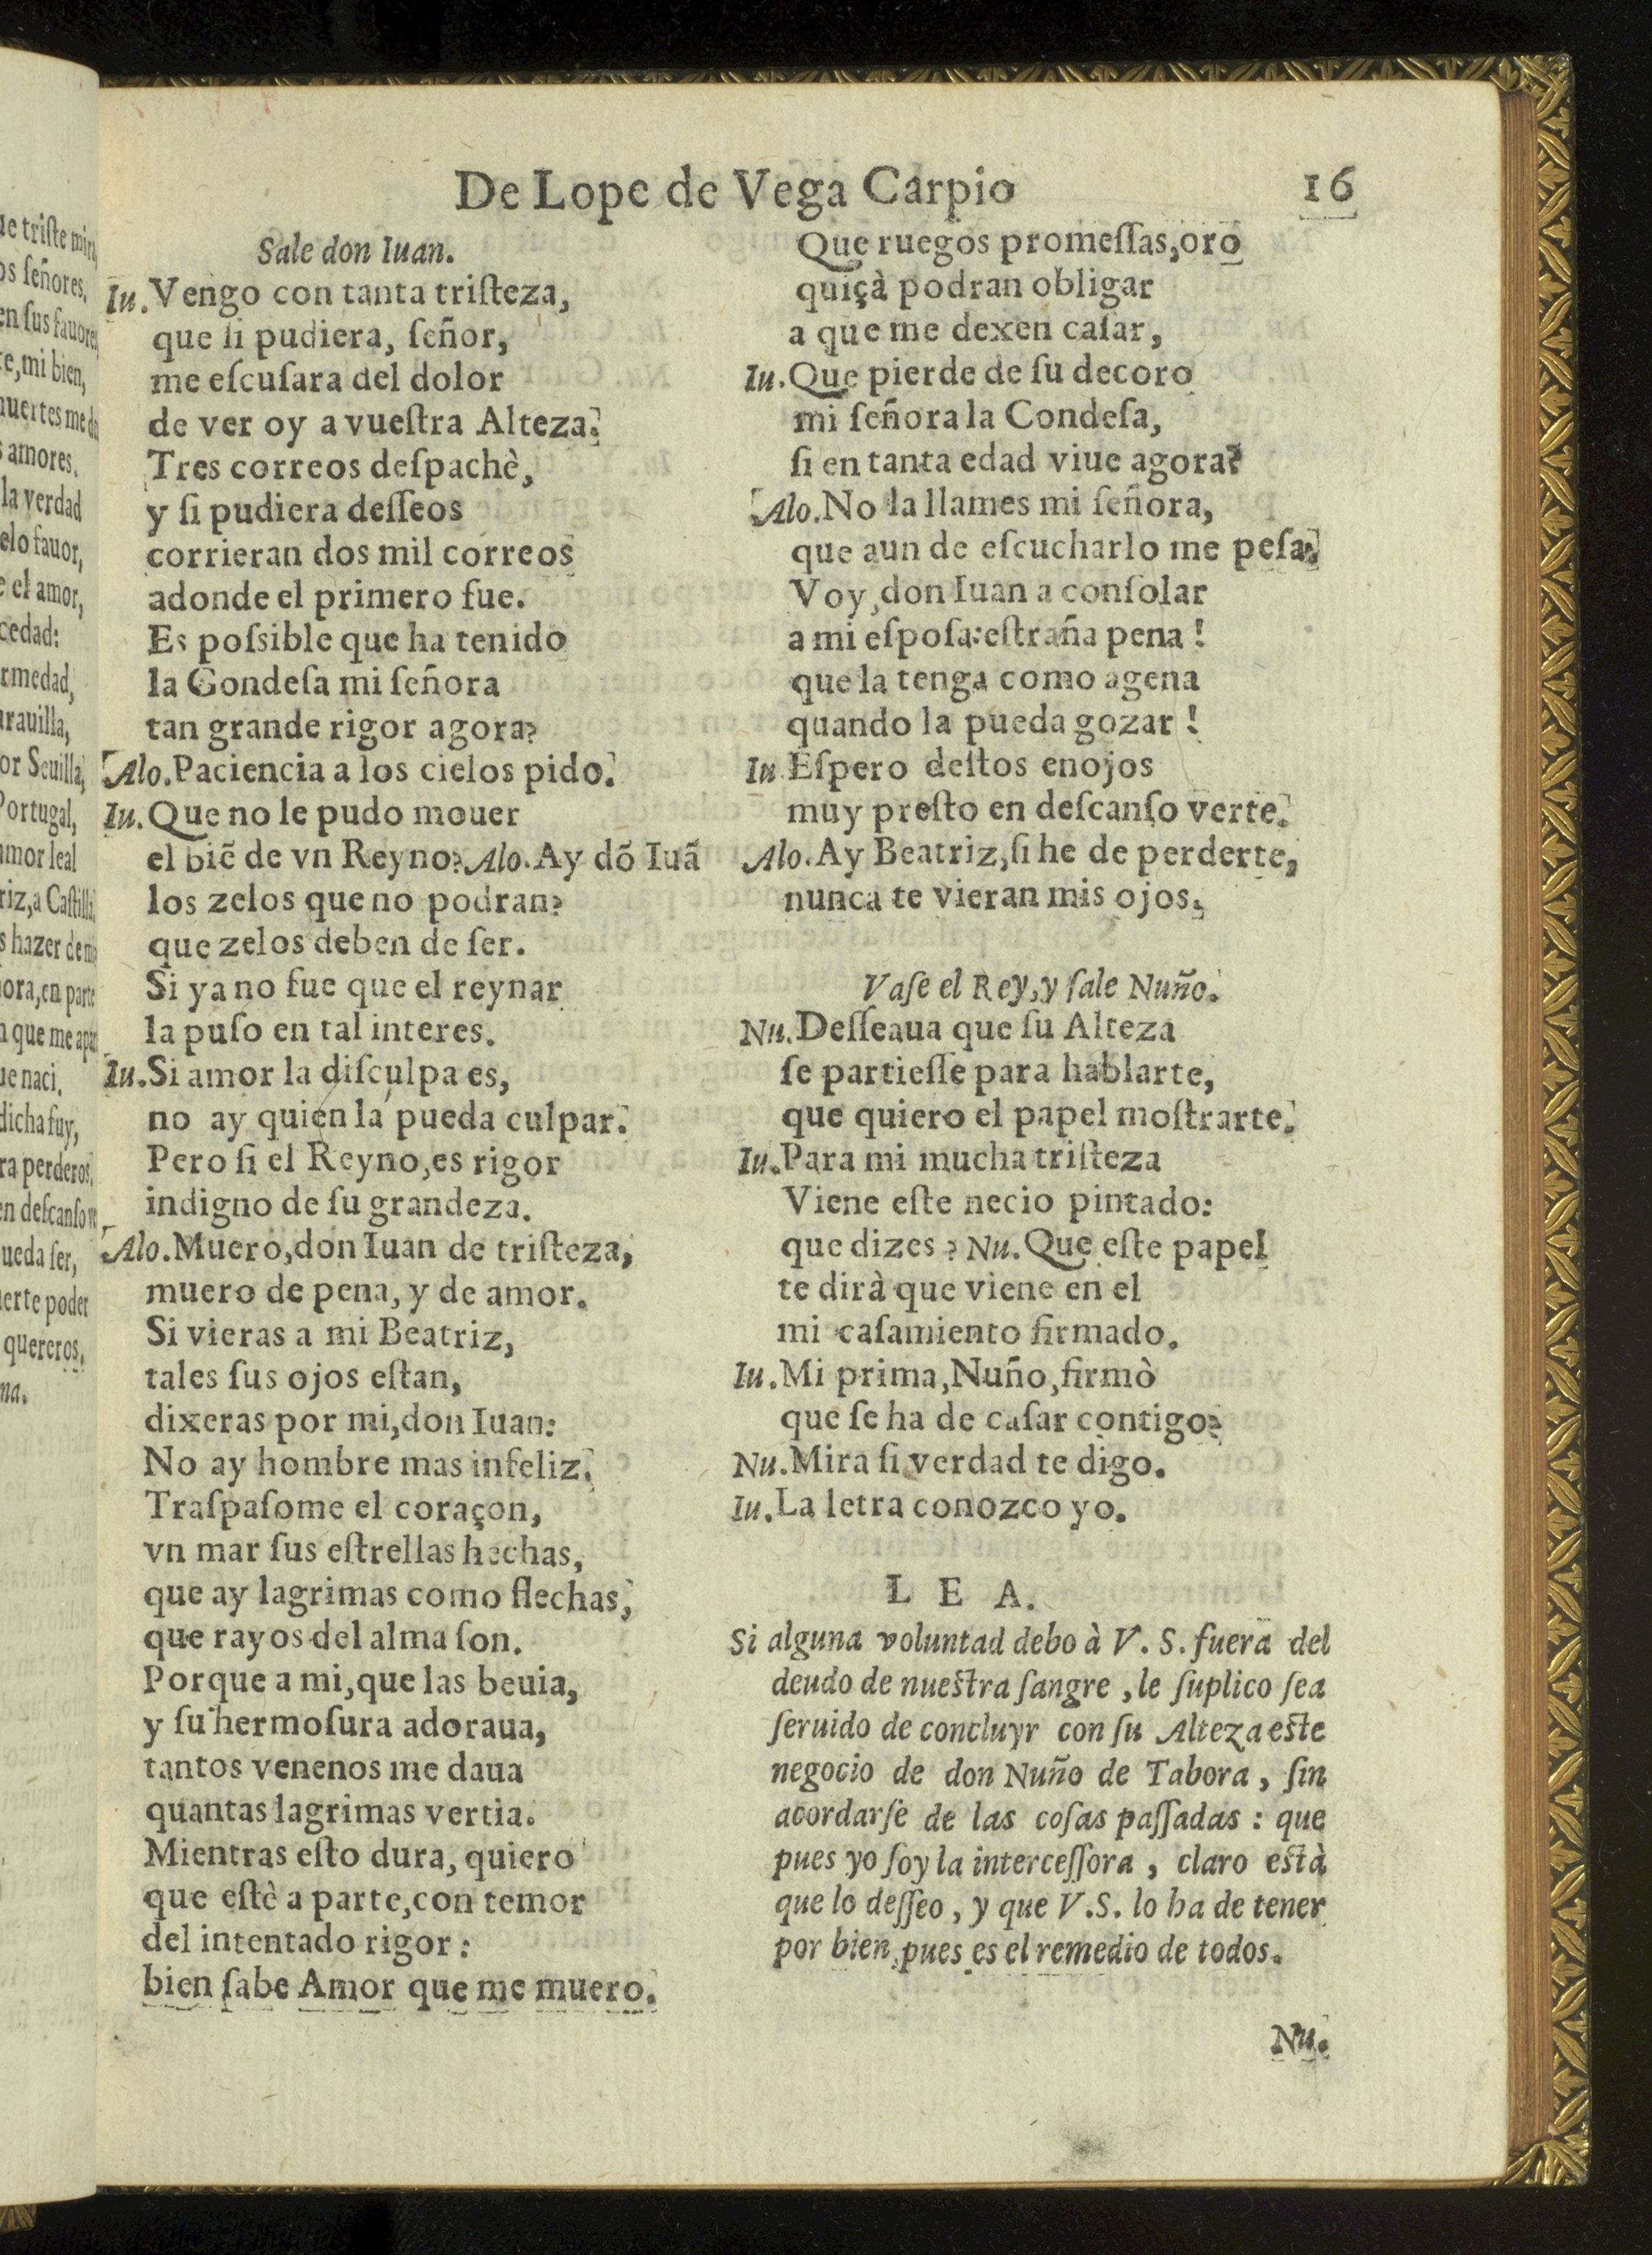 De Lope de Vega Carpio
16
Sale don Iuan.
Iu. Vengo con tanta tristeza,
que si pudiera, señor,
me escusara del dolor
de ver oy a vuestra Alteza.
Tres correos despachè,
y si pudiera desseos
corrieran dos mil correos
adonde el primero fue.
Es possible que ha tenido
la Gondesa mi señora
tan grande rigor agora?
Alo. Paciencia a los cielos pido.
Iu. Que no le pudo mouer
el biẽ de vn Reyno? Alo. Ay dõ Iuã
los zelos que no podran?
que zelos deben de ser.
Si ya no fue que el reynar
la puso en tal interes.
Iu. Si amor la disculpa es,
no ay quien la pueda culpar.
Pero si el Reyno, es rigor
indigno de su grandeza.
Alo. Muero, don Iuan de tristeza,
muero de pena, y de amor.
Si vieras a mi Beatriz,
tales sus ojos estan,
dixeras por mi, don Iuan:
No ay hombre mas infeliz.
Traspasome el coraçon,
vn mar sus estrellas hechas,
que ay lagrimas como flechas,
que rayos del alma son.
Porque a mi, que las beuia,
y su hermosura adoraua,
tantos venenos me daua
quantas lagrimas vertia.
Mientras esto dura, quiero
que estè a parte, con temor
del intentado rigor:
bien sabe Amor que me muero.
Que ruegos promessas, oro
quiçà podran obligar
a que me dexen casar,
Iu. Que pierde de su decoro
mi señora la Condesa,
si en tanta edad viue agora?
Alo. No la llames mi señora,
que aun de escucharlo me pesa.
Voy, don Iuan a consolar
a mi esposa: estraña pena!
que la tenga como agena
quando la pueda gozar!
Iu Espero destos enojos
muy presto en descanso verte.
Alo. Ay Beatriz, si he de perderte,
nunca te vieran mis ojos.
Vase el Rey, y sale Nuño.
Nu. Desseaua que su Alteza
se partiesse para hablarte,
que quiero el papel mostrarte.
Iu. Para mi mucha tristeza
Viene este necio pintado:
que dizes? Nu. Que este papel
te dirà que viene en el
mi casamiento firmado.
Iu. Mi prima, Nuño, firmò
que se ha de casar contigo?
Nu. Mira si verdad te digo.
Iu. La letra conozco yo.
L E A.
Si alguna voluntad debo à V. S. fuera del
deudo de nuestra sangre, le suplico sea
seruido de concluyr con su Alteza este
negocio de don Nuño de Tabora, sin
acordarse de las cosas passadas: que
pues yo soy la intercessora, claro està
que lo desseo, y que V.S. lo ha de tener
por bien, pues es el remedio de todos.
Nu.